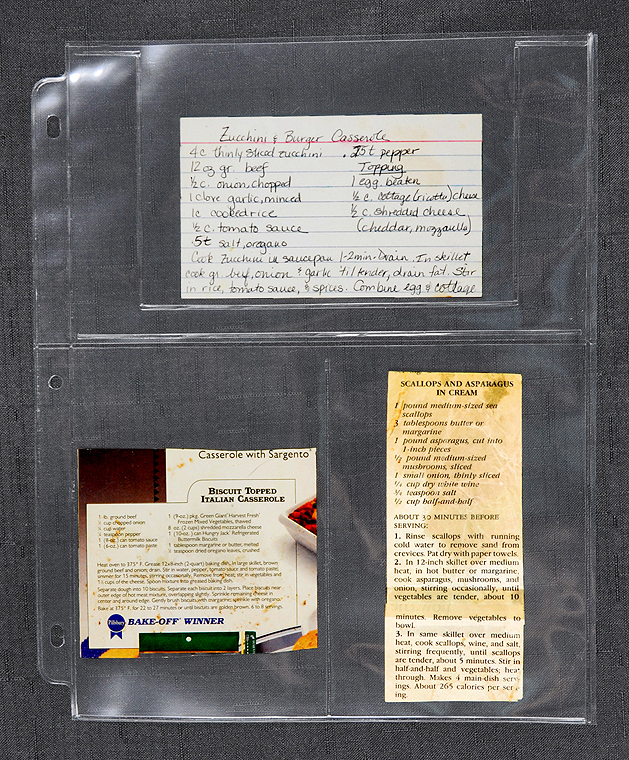 Zucchini & Burger Casserole
4 c. thinly sliced zucchini
12 oz gr. beef
½ c. onion, chopped
1 clove garlic, minced
1c cooked rice
½ c. tomato sauce
.5t salt, oregano
.25t pepper
Topping
1 egg, beaten
½ c. cottage (ricotta) cheese
½ c. shredded cheese
(cheddar, mozzarella)
Cook zucchini in saucepan 1-2 min. Drain. In skillet
cook gr. beef, onion & garlic til tender, drain fat. Stir
in rice, tomato sauce, & spices. Combine egg & cottage
Casserole with Sargento
BISCUIT TOPPED
ITALIAN CASSEROLE
1 lb. ground beef
cup chopped onion
cup water
teaspoon pepper
(8-oz.) can tomato sauce
(6-oz.) can tomato paste
1 (9-oz.) pkg. Green Giant Harvest Fresh
Frozen Mixed Vegetables, thawed
8 oz. (2 cups) shredded mozzarella cheese
1 (10-oz.) can Hungry Jack Refrigerated
Buttermilk Biscuits
1 tablespoon margarine or butter, melted
teaspoon dried oregano leaves, crushed
Heat oven to 375° F. Grease 12x8-inch (2-quart) baking dish. In large skillet, brown
ground beef and onion; drain. Stir in water, pepper, tomato sauce and tomato paste;
simmer for 15 minutes, stirring occasionally. Remove from heat; stir in vegetables and
1½ cups of the cheese. Spoon mixture into greased baking dish.
Separate dough into 10 biscuits. Separate each biscuit into 2 layers. Place biscuits near
outer edge of hot meat mixture, overlapping slightly. Sprinkle remaining cheese in
center and around edge. Gently brush biscuits with margarine; sprinkle with oregano.
Bake at 375° F. for 22 to 27 minutes or until biscuits are golden brown. 6 to 8 servings.
Pillsbury
BAKE-OFF WINNER
SCALLOPS AND ASPARAGUS
IN CREAM
1 pound medium-sized sea
scallops
3 tablespoons butter or
margarine
1 pound asparagus, cut into
1-inch pieces
½ pound medium-sized
mushrooms, sliced
1 small onion, thinly sliced
¼ cup dry white wine
¾ teaspoon salt
½ cup half-and-half
ABOUT 30 MINUTES BEFORE
SERVING:
1. Rinse scallops with running
cold water to remove sand from
crevices. Pat dry with paper towels.
2. In 12-inch skillet over medium
heat, in hot butter or margarine,
cook asparagus, mushrooms, and
onion, stirring occasionally, until
vegetables are tender, about 10
minutes. Remove vegetables to
bowl.
3. In same skillet over medium
heat, cook scallops, wine, and salt,
stirring frequently, until scallops
are tender, about 5 minutes. Stir in
half-and-half and vegetables; heat
through. Makes 4 main-dish serv-
ings. About 265 calories per serv-
ing.